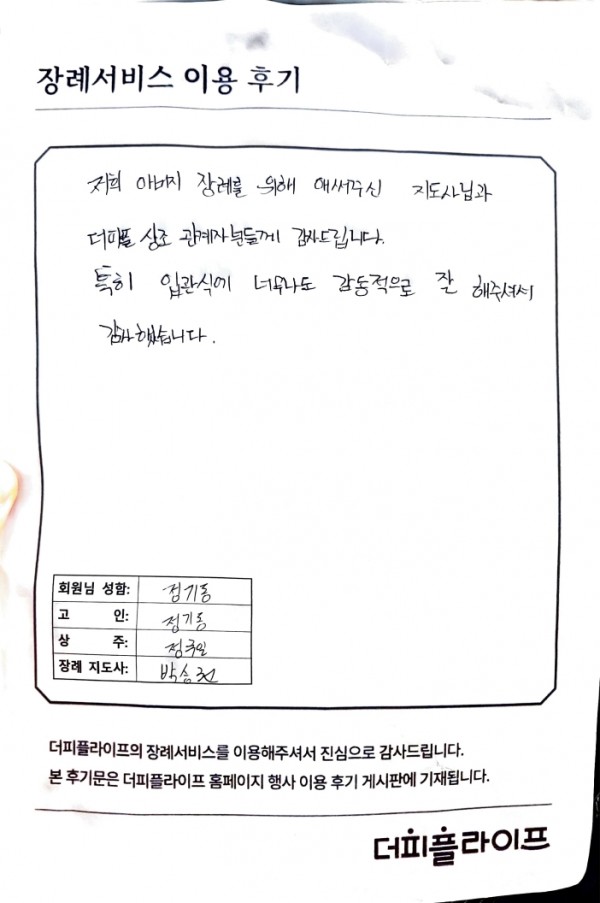 장례서비스 이용 후기
저희 아버지 장례를 위해 애써주신 지도사님과
더피플 상조 관계자분들께 감사드립니다.
특히 입관식에 너무나도 감동적으로 잘 해주셔서
감사했습니다.
회원님 성함: 정기동
고 인: 정기동
상 주:
장례 지도사: 박승원
더피플라이프의 장례서비스를 이용해주셔서 진심으로 감사드립니다.
본 후기문은 더피플라이프 홈페이지 행사 이용 후기 게시판에 기재됩니다.
더피플라이프